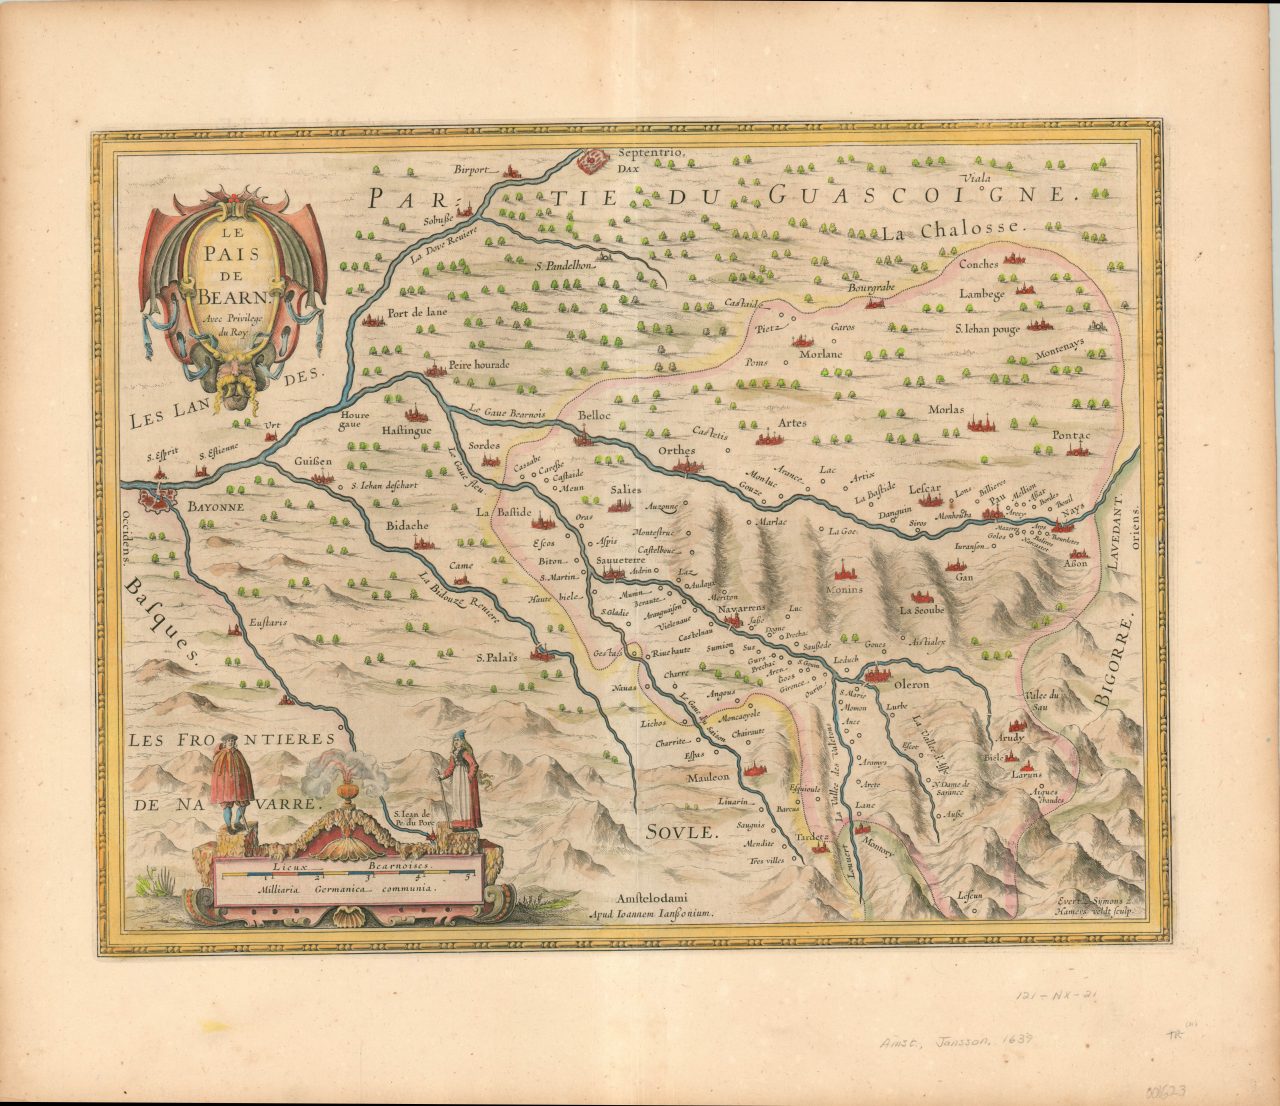 Septentrio.
DAX
Birport
PARTIE DU GUASCOIGNE.
Viala
Sobuße
La Dove Reuiere
La Chalosse.
LE
PAIS
DE
BEARN.
Avec Privilege
du Roy.
S. Pandelbon
Conches
Bourgrabe
Lambege
Castaide
Port de lane
Pietz
Garos
S. Iehan pouge
Morlane
Montenays
Poms
Peire hourade
LES LANDES.
Houre
gaue
Hastingue
Le Gaue Bearnois
Belloc
Morlas
Artes
Castetis
Pontac
Vrt
S. Esprit
S. Estienne
Sordes
Orthes
Le Gaue fleu.
Cassabe
Careße
Castaide
Meun
Guißen
S. Iehan deschart
Monluc
Arance
Lac
Artix
Gouze
La Bastide
Lescar
Lons
Billieres
Pau
Mollion
Aßar
Bordes
Boeil
Nays
BAYONNE
Salies
Auzonne
La Bastide
Danguin
Monhouba
Areßy
Occidens.
Bidache
Oras
Marlac
La Goe
Siros
Mazeres
Golos
Escos
Aspis
Montestruc
Castelbouc
Iuranson
Bourdetes
Aßon
LAVEDANT.
oriens.
Came
Biton
Sauueterre
Andrin
Laz
Audoux
Gan
S. Martin
Monins
La Bidouze Reniere
Haute biele
Mumin
Berante
Meriton
La Seoube
Basques.
Navarrens
Luc
S. Gladie
Araguaißen
Vielenaue
Iasse
Dogne
Prechac
Eustaris
Castelnau
Aistialex
S. Palaïs
Gestas
Riuehaute
Sumion
Sus
Saussede
Goues
Gurs
Prechac
Aren
S. Gouin
Leduch
BIGORRE.
Charre
Goos
Gironce
Ourin
Oleron
Nauas
Angous
S. Marie
Momon
Lurbe
Valee du
Sau
Le Gaue du Saison
Moncauyole
Lichos
Ance
LES FRONTIERES
Charrite
Chairaute
Escot
La Vallee d'Aspe
Arudy
Espas
Biele
Aramys
Laruns
Mauleon
N. Dame de
Sarance
Aigues
chaudes
DE NAVARRE.
Esquioule
La Vallee des Valeton
Arete
Liuarin
Barcus
Lane
Auße
S. Iean de
Pe. du Porc
SOVLE.
Sauguis
Tardetz
Mendite
Montory
Tres villes
Louuert
Lieux Bearnoises.
1 2 3 4 5
Milliaria Germanica communia.
Lescun
Amstelodami
Apud Ioannem Ianßonium.
Evert Symons z
Hamers veldt sculp.
121-NX-21
Amst., Jansson, 1639
001623